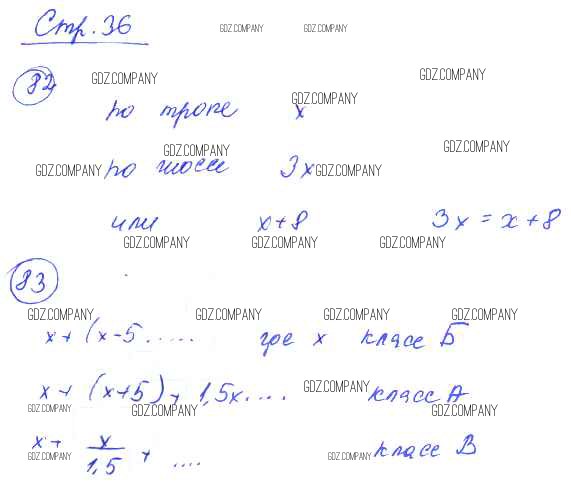 Стр. 36
GDZ.COMPANY GDZ.COMPANY
82 GDZ.COMPANY GDZ.COMPANY
по тропе х GDZ.COMPANY
GDZ.COMPANY GDZ.COMPANY
GDZ.COMPANY по шоссе 3х GDZ.COMPANY
или х+8 3х = х+8
GDZ.COMPANY GDZ.COMPANY GDZ.COMPANY
83
GDZ.COMPANY GDZ.COMPANY GDZ.COMPANY GDZ.COMPANY
х+ (х-5 ..... где х классе Б
х+ (х+5)+ 1,5х.... GDZ.COMPANY классе А
GDZ.COMPANY GDZ.COMPANY GDZ.COMPANY
х+ х/1,5 + .... классе В
GDZ.COMPANY GDZ.COMPANY